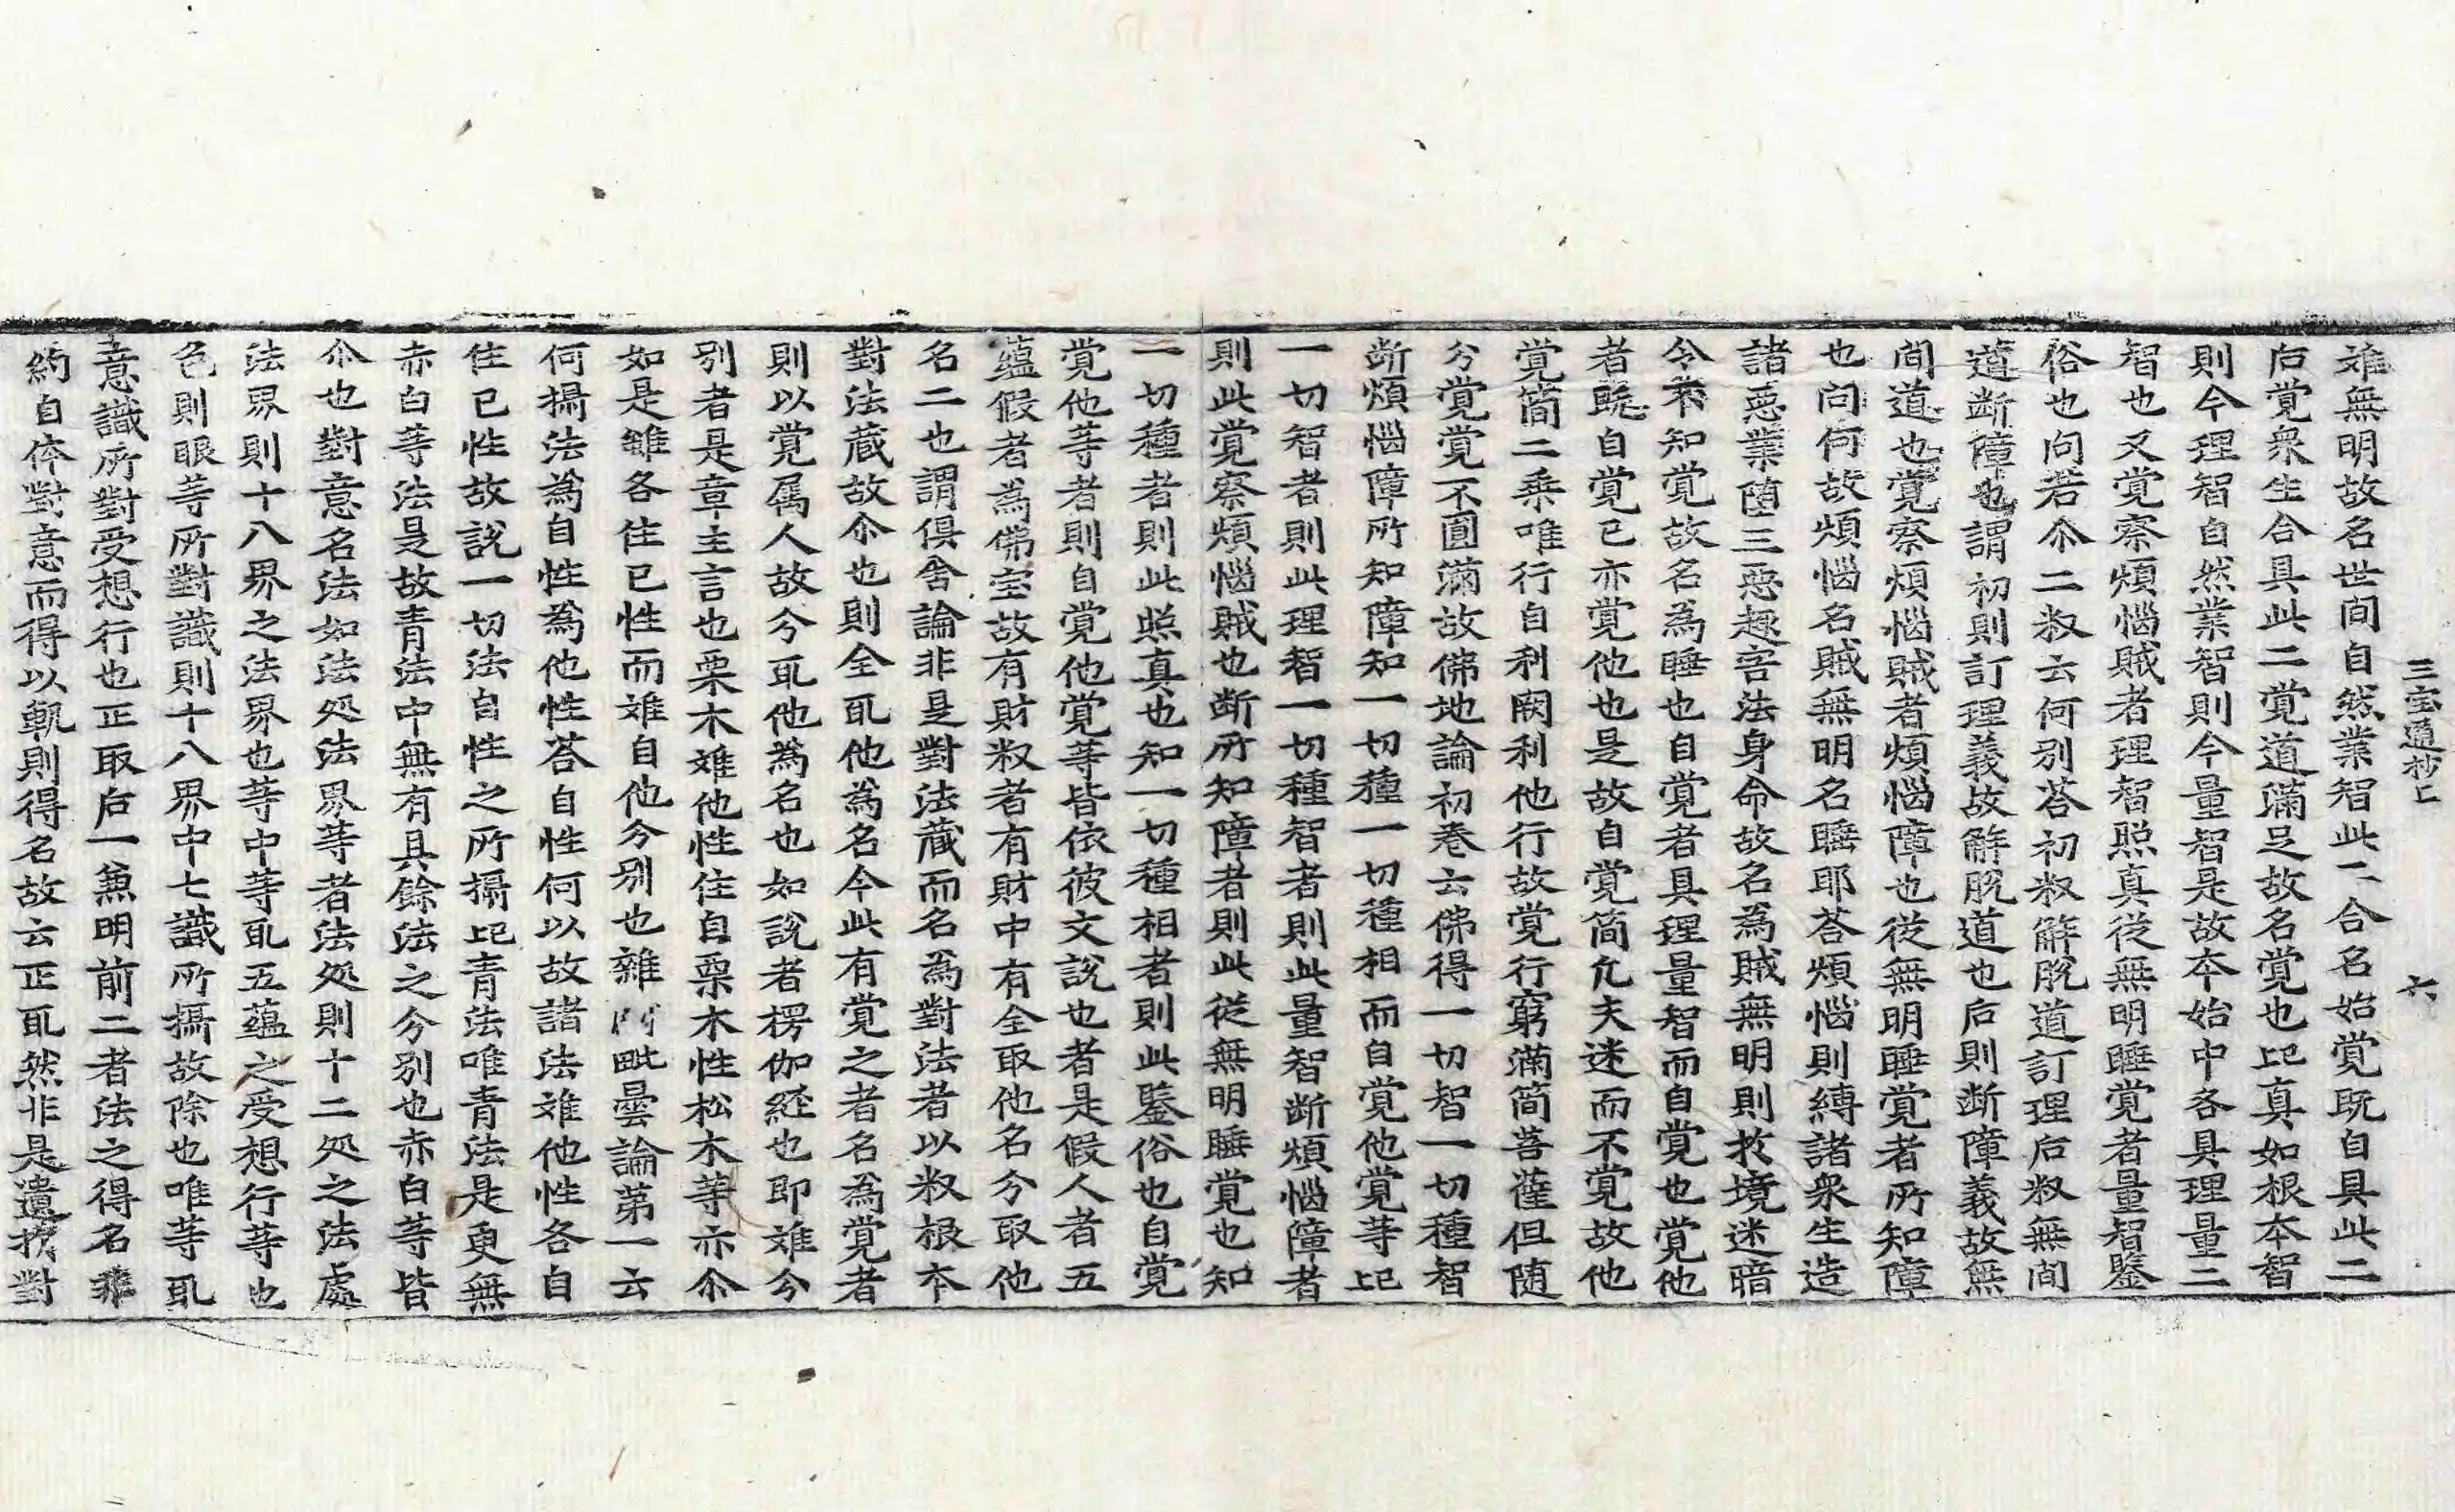 三宝通抄上 六
难無明故名世间自然業智此二合名始覚既自具此二
后覚衆生合具此二覚道满足故名覚也記真如根本智
則今理智自然業智則今量智是故本始中各具理量二
智也又覚察煩惱賊者理智照真從無明睡覚者量智鑒
俗也问若尒二𥼶云何别荅初𥼶解脱道訂理后𥼶無间
道断障也謂初則訂理義故解脱道也后則断障義故無
间道也覚察煩惱賊者煩惱障也從無明睡覚者所知障
也问何故煩惱名賊無明名睡耶荅煩惱則縛諸衆生造
諸惡業堕三惡趣害法身命故名為賊無明則扵境迷暗
令不知覚故名為睡也自覚者具理量智而自覚也覚他
者既自覚已亦覚他也是故自覚简凢夫迷而不覚故他
覚简二乘唯行自利阙利他行故覚行窮满简菩薩但随
分覚覚不圓滿故佛地論初卷云佛得一切智一切種智
断煩惱障所知障知一切種一切種相而自覚他覚等記
一切智者則此理智一切種智者則此量智断煩惱障者
則此覚察煩惱賊也断所知障者則此從無明睡覚也知
一切種者則此照真也知一切種相者則此鑒俗也自覚
覚他等者則自覚他覚等皆依彼文說也者是假人者五
蘊假者為佛宝故有財𥼶者有財中有全取他名分取他
名二也謂俱舍論非是對法蔵而名為對法者以𥼶根本
對法蔵故尒也則全取他為名今此有覚之者名為覚者
則以覚属人故今取他為名也如說者楞伽経也即难今
别者是章主言也栗木难他性住自栗木性松木等亦尒
如是雖各住已性而难自他分别也雜阿毗曇論苐一云
何攝法為自性為他性荅自性何以故諸法难他性各自
住已性故說一切法自性之所攝記青法唯青法是更無
赤白等法是故青法中無有具餘法之分别也赤白等皆
尒也對意名法如法処法界等者法処則十二処之法處
法界則十八界之法界也等中等取五蘊之受想行等也
色則眼等所對識則十八界中七識所攝故除也唯等取
意識所對受想行也正取后一兼明前二者法之得名非
約自体對意而得以軌則得名故云正取然非是遣扵對